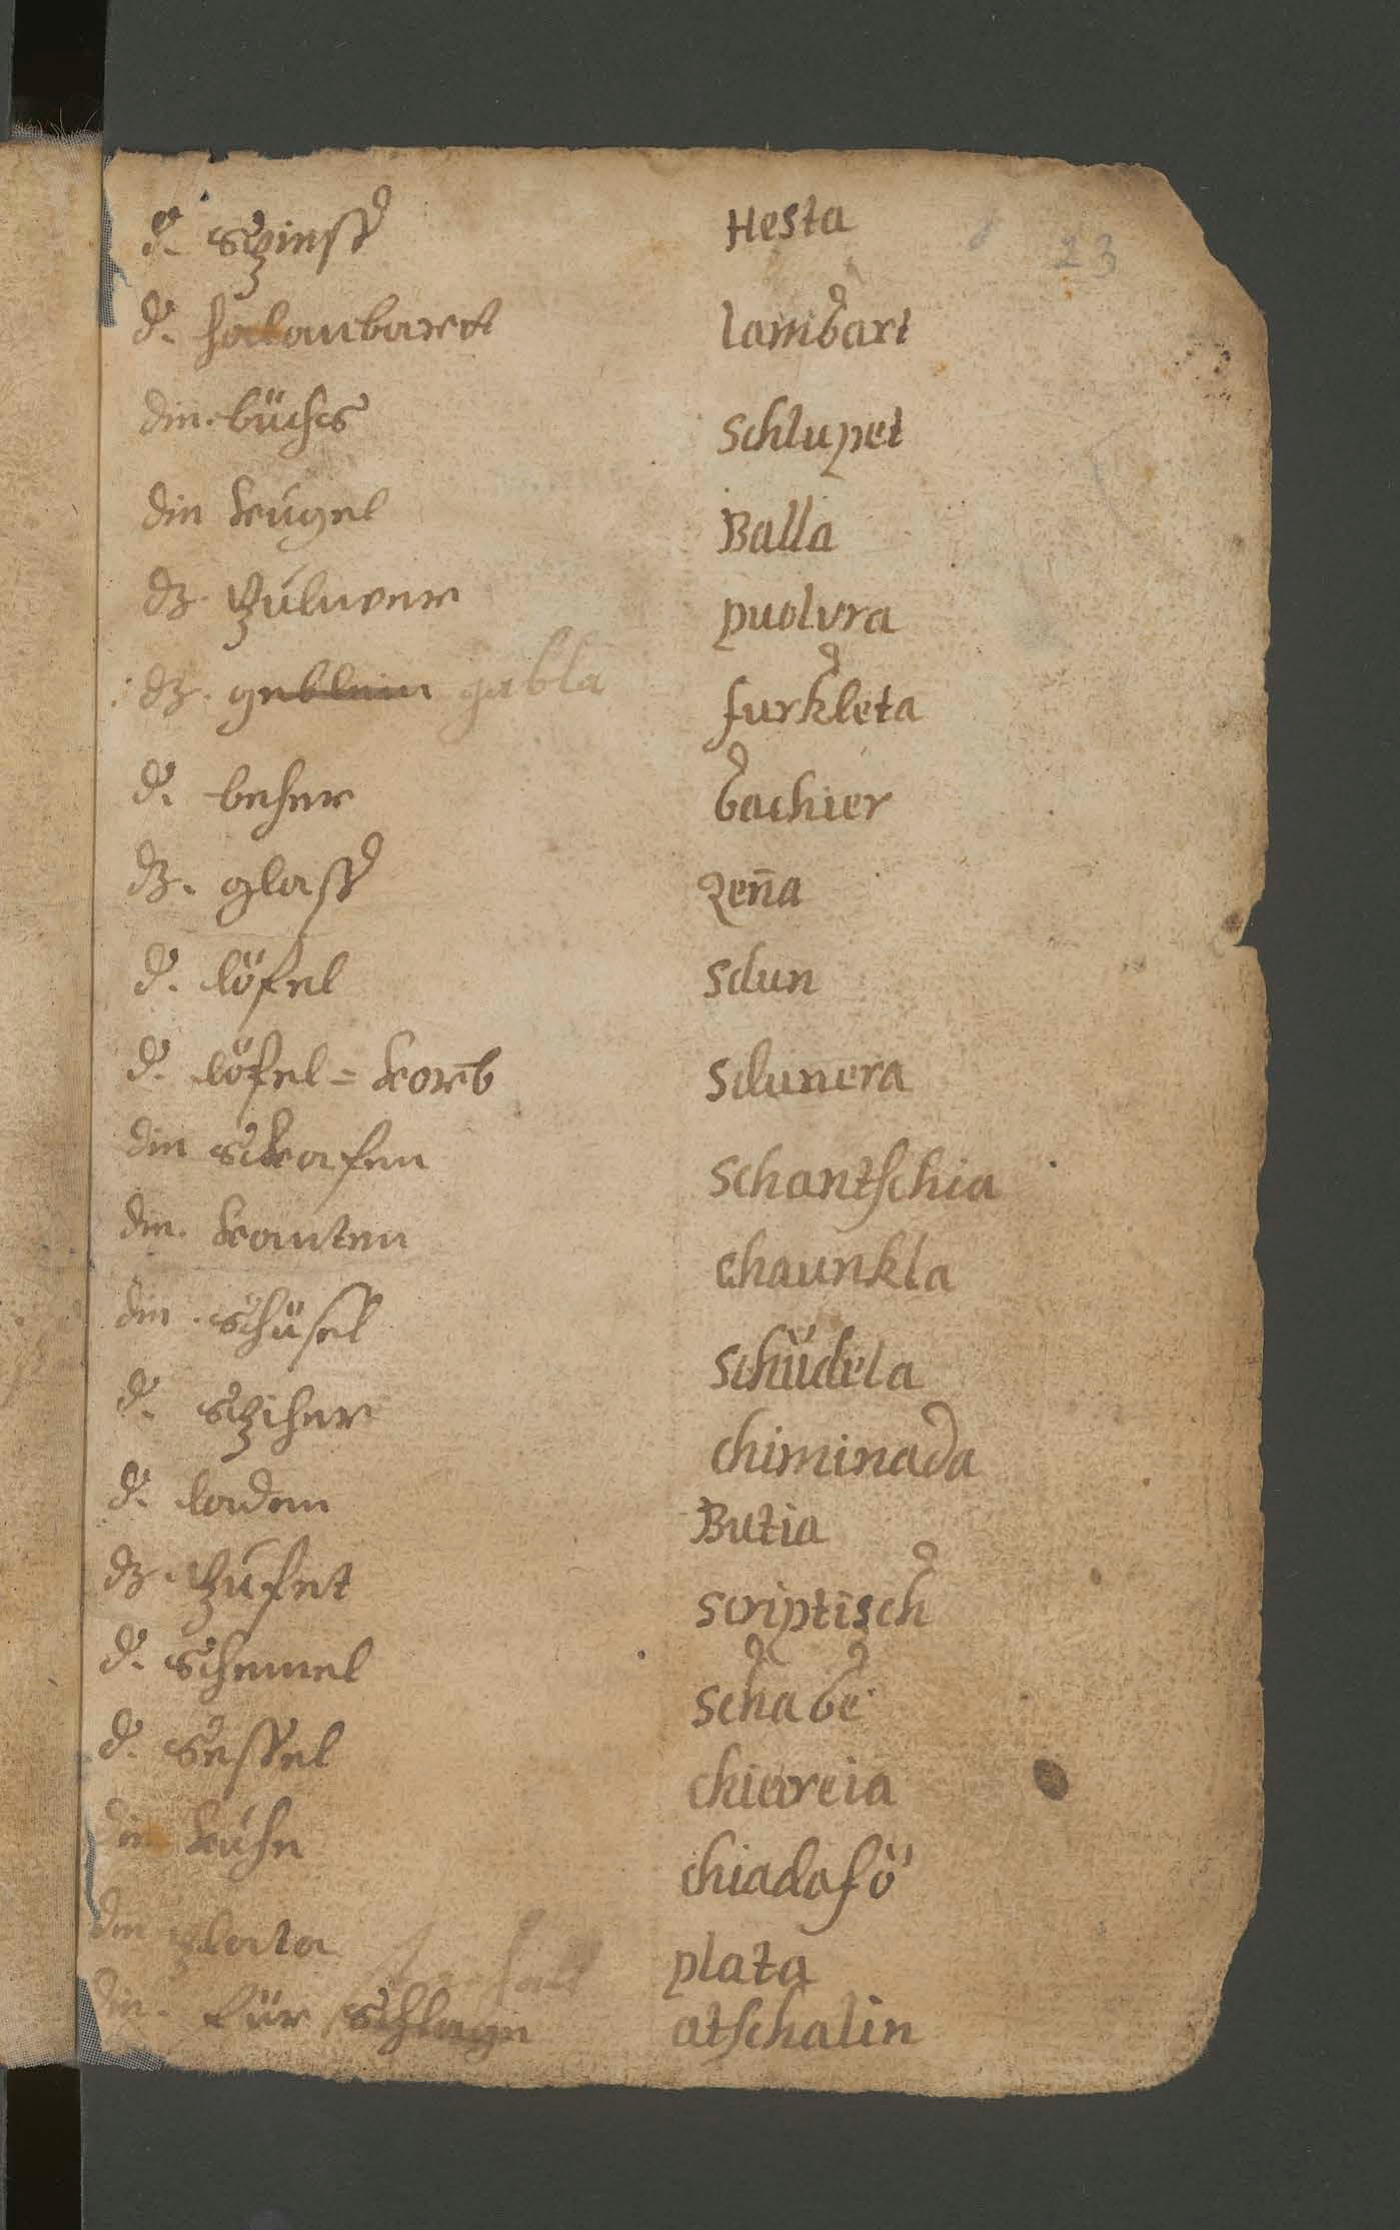 23
d. spiess Hesta
d. halanbart lambart
din. büchs schlupet
din kugel Balla
dz. pulwer puolvra
dz. geblein gabla furkleta
d. beher bachier
dz. glass zeña
d. löfel sdun
d. löfel = korb sdunera
din schafen schantschia
din. kanten chaunkla
din. schüsel schüdela
d. spiher chiminada
d. laden Butia
dz. pufet scriptisch
d. schemel schabe
d. sessel chiereia
din kuhe chiadafö
din plata plata
din. für schlage atschalin